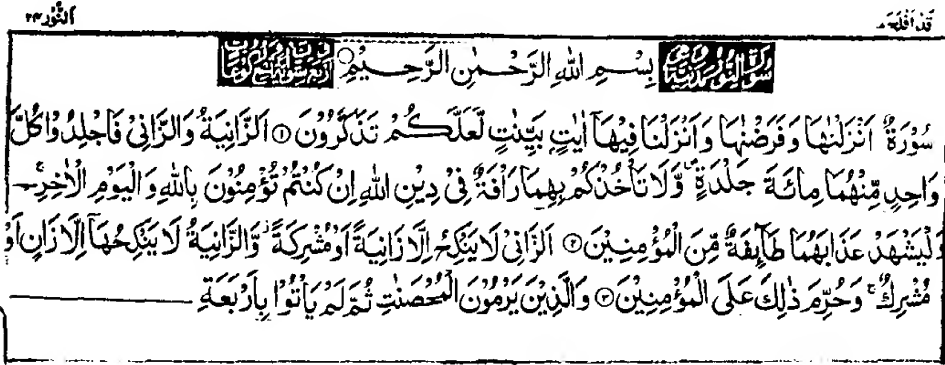 قد افلح ۱۸ النُّوْر ۲۴
سُوْرَةُ النُّوْرِ مَدَنِيَّةٌ بِسْمِ اللهِ الرَّحْمٰنِ الرَّحِيْمِ
سُوْرَةٌ اَنْزَلْنٰهَا وَفَرَضْنٰهَا وَاَنْزَلْنَا فِيْهَآ اٰيٰتٍۭ بَيِّنٰتٍ لَّعَلَّكُمْ تَذَكَّرُوْنَ ۱ اَلزَّانِيَةُ وَالزَّانِيْ فَاجْلِدُوْا كُلَّ
وَاحِدٍ مِّنْهُمَا مِائَةَ جَلْدَةٍ ۪ وَّلَا تَاْخُذْكُمْ بِهِمَا رَاْفَةٌ فِيْ دِيْنِ اللهِ اِنْ كُنْتُمْ تُؤْمِنُوْنَ بِاللهِ وَالْيَوْمِ الْاٰخِرِ ۚ
وَلْيَشْهَدْ عَذَابَهُمَا طَآئِفَةٌ مِّنَ الْمُؤْمِنِيْنَ ۲ اَلزَّانِيْ لَا يَنْكِحُ اِلَّا زَانِيَةً اَوْ مُشْرِكَةً ۡ وَّالزَّانِيَةُ لَا يَنْكِحُهَآ اِلَّا زَانٍ اَوْ
مُشْرِكٌ ۚ وَحُرِّمَ ذٰلِكَ عَلَى الْمُؤْمِنِيْنَ ۳ وَالَّذِيْنَ يَرْمُوْنَ الْمُحْصَنٰتِ ثُمَّ لَمْ يَاْتُوْا بِاَرْبَعَةِ